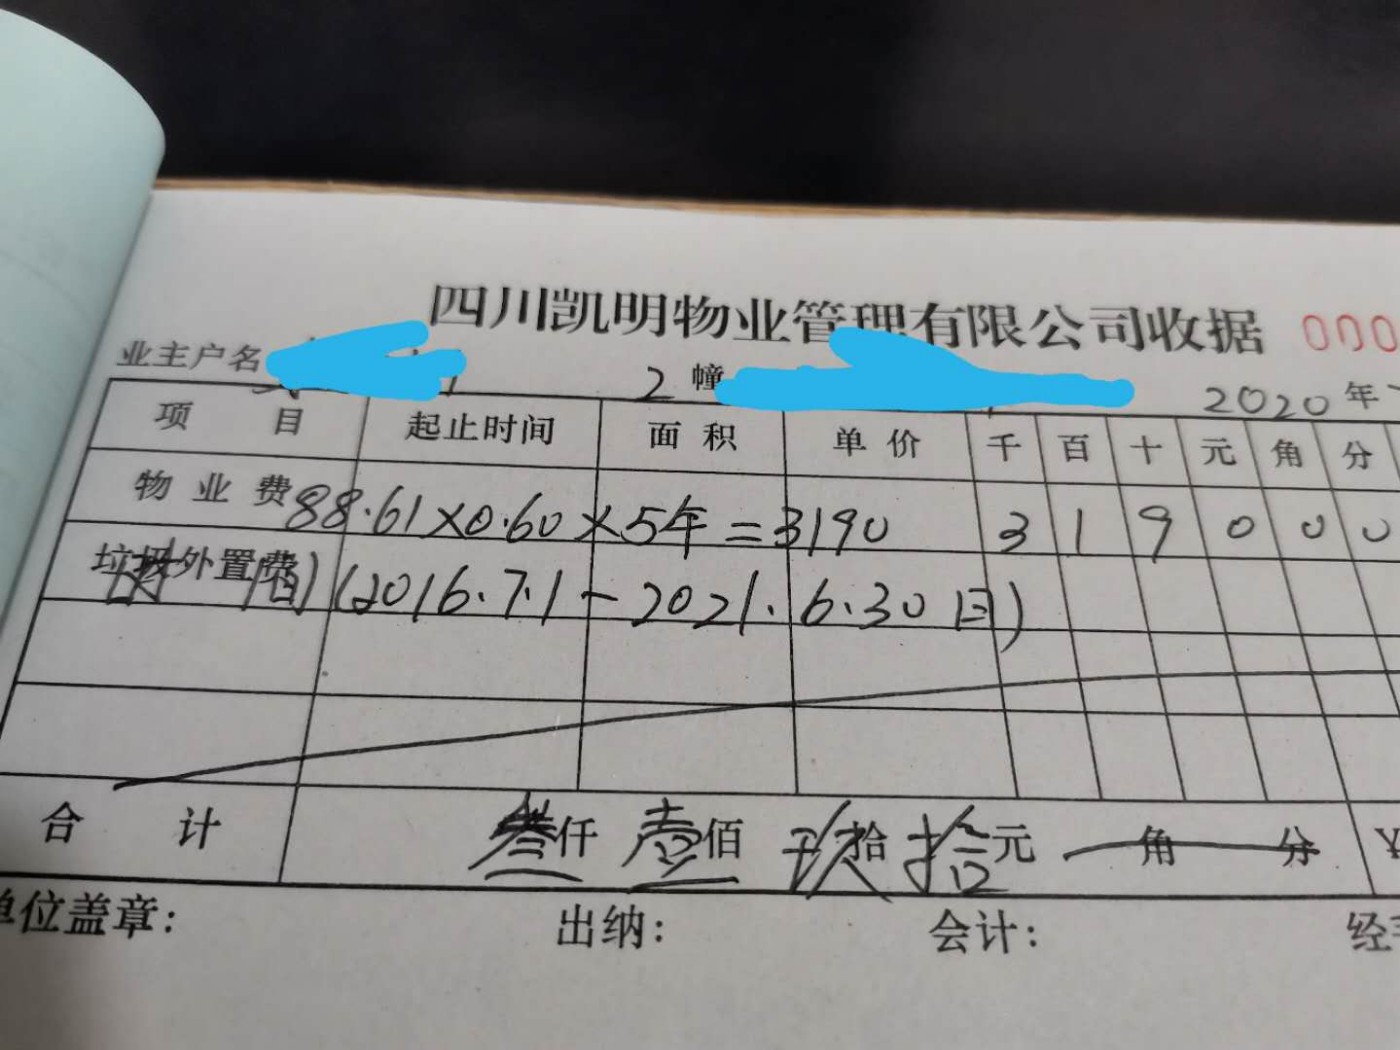 四川凯明物业管理有限公司收据 000
业主户名 2 幢 2020 年
项 目 起止时间 面 积 单 价 千 百 十 元 角 分
物 业 费 88.61×0.60×5年=3190 3 1 9 0 0 0
垃圾外置费 时间 (2016.7.1-2021.6.30日)
合 计 叁仟 壹佰 玖拾 拾元 角 分 ¥
单位盖章: 出纳: 会计: 经